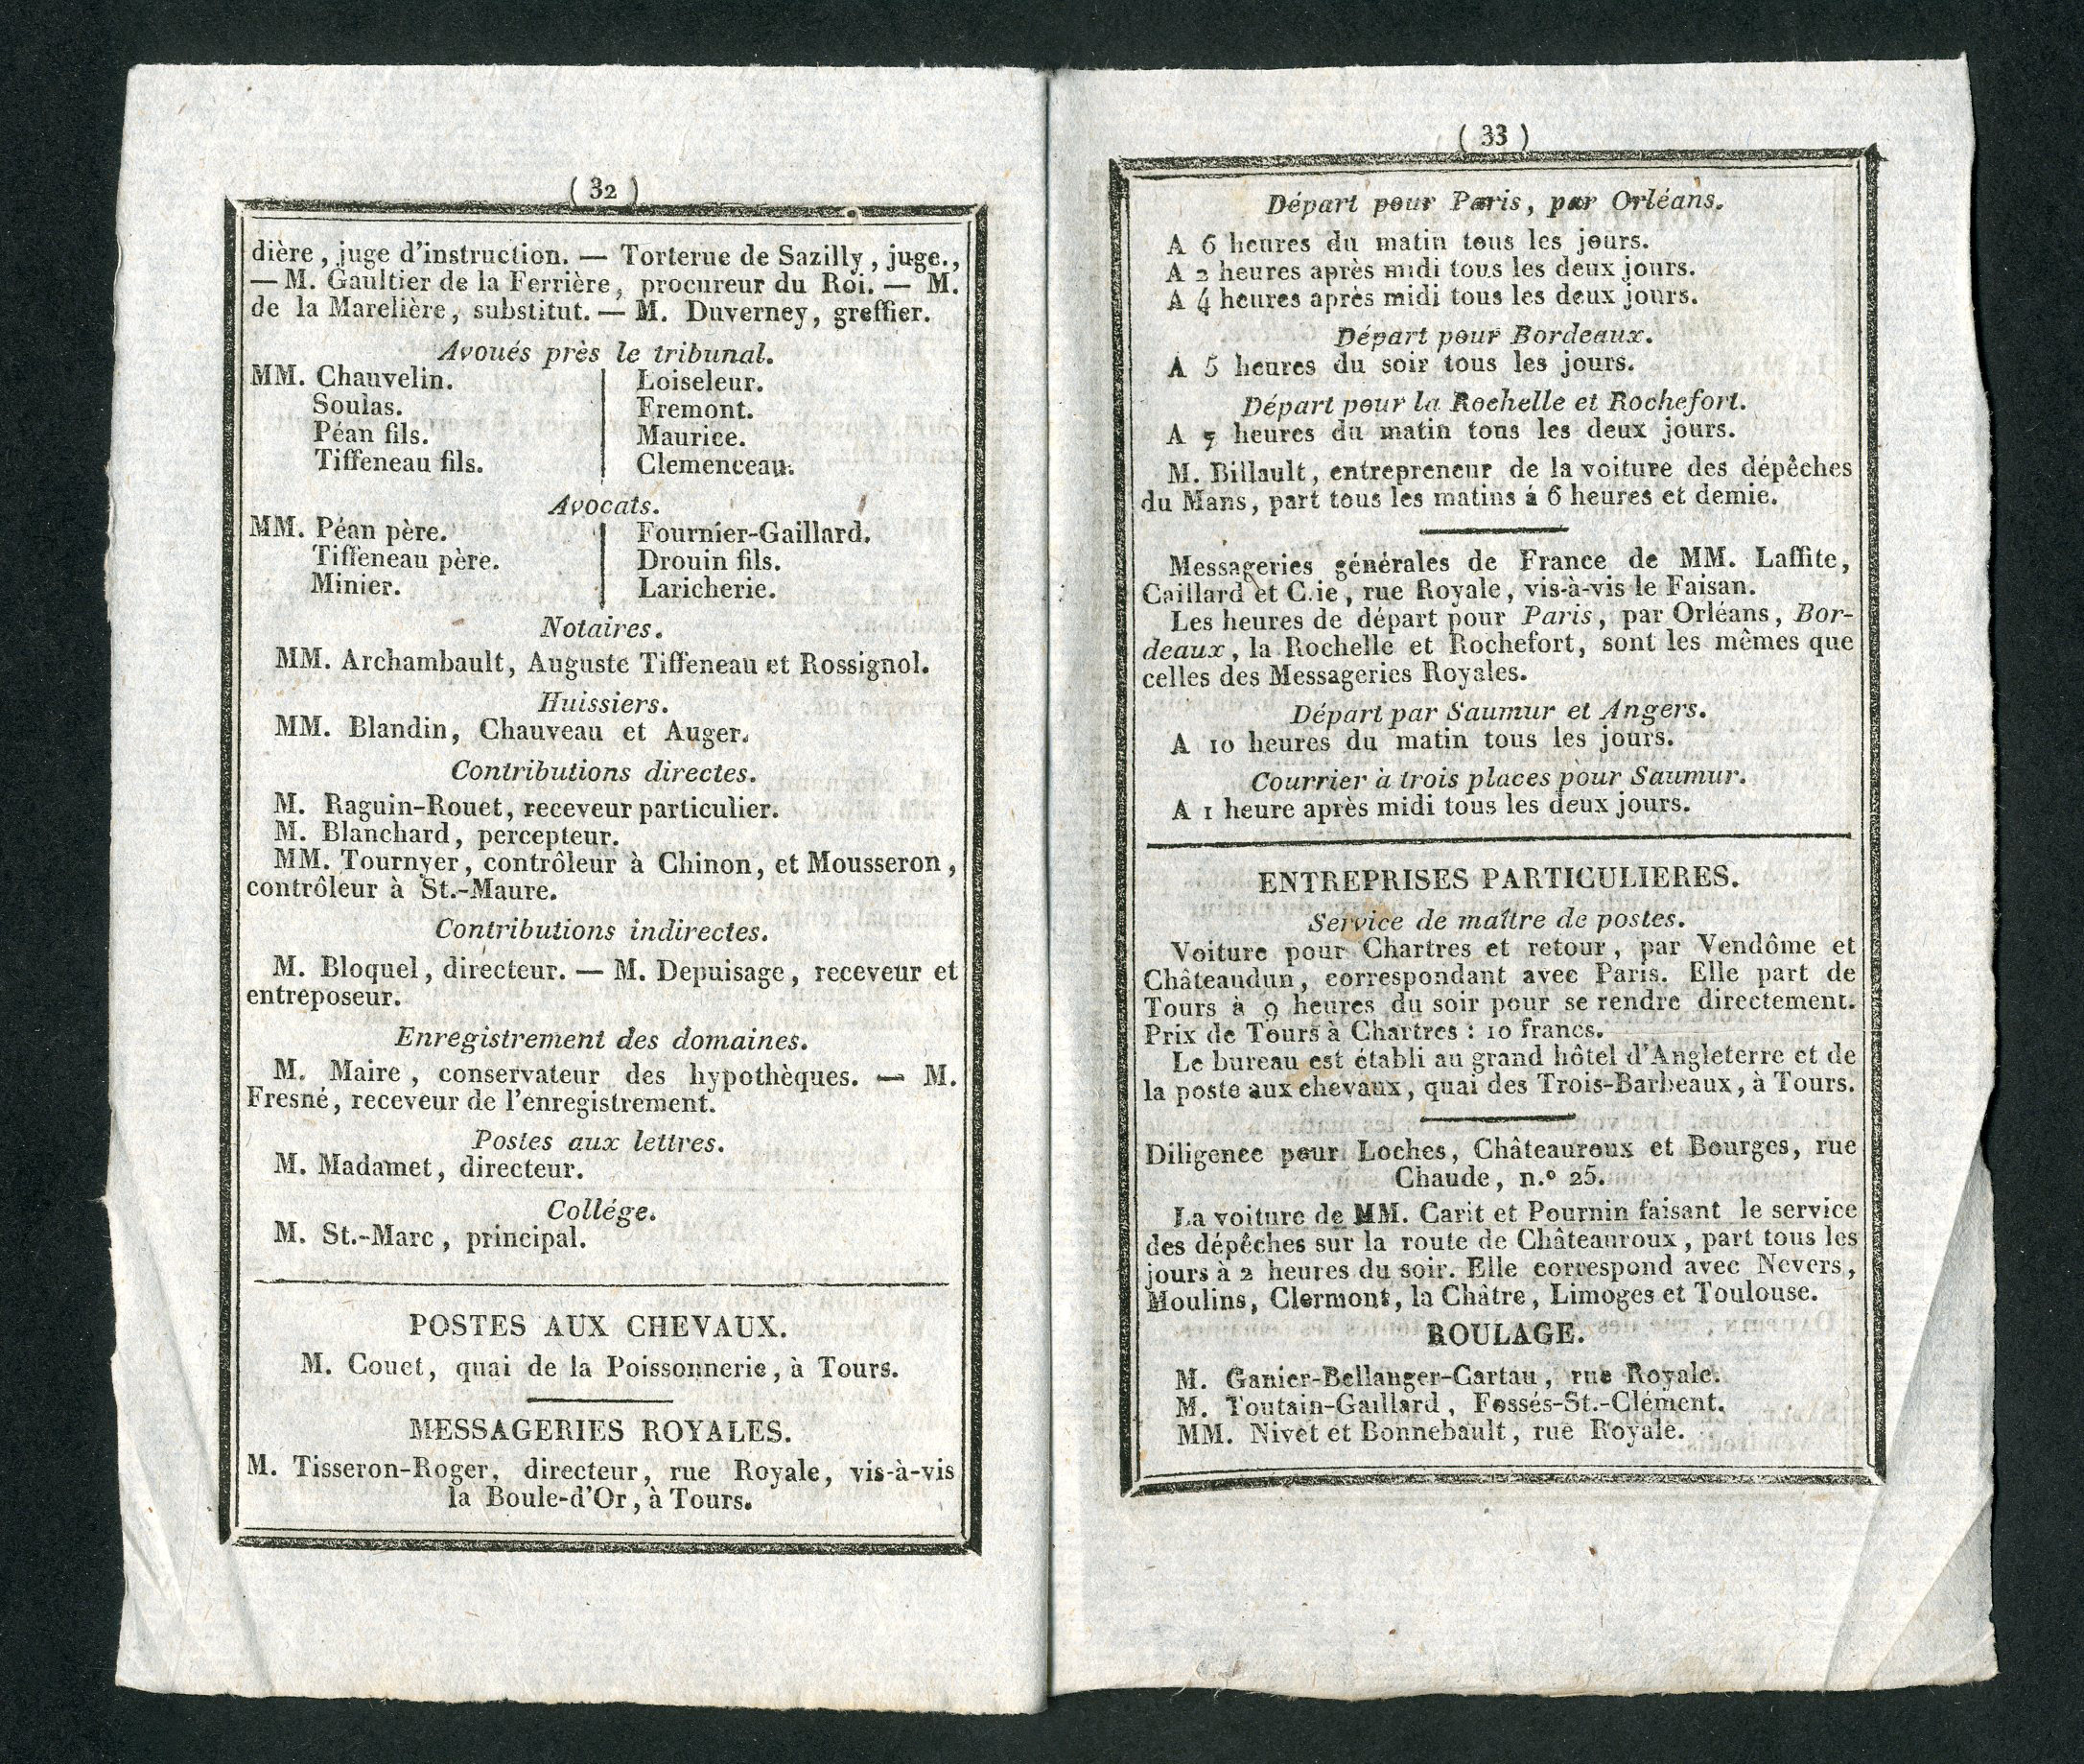 ( 32 )
dière, juge d'instruction. — Torterue de Sazilly, juge.,
— M. Gaultier de la Ferrière, procureur du Roi. — M.
de la Marelière, substitut. — M. Duverney, greffier.
Avoués près le tribunal.
MM. Chauvelin. Loiseleur.
Soulas. Fremont.
Péan fils. Maurice.
Tiffeneau fils. Clemenceau.
Avocats.
MM. Péan père. Fournier-Gaillard.
Tiffeneau père. Drouin fils.
Minier. Laricherie.
Notaires.
MM. Archambault, Auguste Tiffeneau et Rossignol.
Huissiers.
MM. Blandin, Chauveau et Auger.
Contributions directes.
M. Raguin-Rouet, receveur particulier.
M. Blanchard, percepteur.
MM. Tournyer, contrôleur à Chinon, et Mousseron,
contrôleur à St.-Maure.
Contributions indirectes.
M. Bloquel, directeur. — M. Depuisage, receveur et
entreposeur.
Enregistrement des domaines.
M. Maire, conservateur des hypothèques. — M.
Fresné, receveur de l'enregistrement.
Postes aux lettres.
M. Madamet, directeur.
Collége.
M. St.-Marc, principal.
POSTES AUX CHEVAUX.
M. Couet, quai de la Poissonnerie, à Tours.
MESSAGERIES ROYALES.
M. Tisseron-Roger, directeur, rue Royale, vis-à-vis
la Boule-d'Or, à Tours.
( 33 )
Départ pour Paris, par Orléans.
A 6 heures du matin tous les jours.
A 2 heures après midi tous les deux jours.
A 4 heures après midi tous les deux jours.
Départ pour Bordeaux.
A 5 heures du soir tous les jours.
Départ pour la Rochelle et Rochefort.
A 7 heures du matin tous les deux jours.
M. Billault, entrepreneur de la voiture des dépêches
du Mans, part tous les matins á 6 heures et demie.
Messageries générales de France de MM. Laffite,
Caillard et C.ie, rue Royale, vis-à-vis le Faisan.
Les heures de départ pour Paris, par Orléans, Bor-
deaux, la Rochelle et Rochefort, sont les mêmes que
celles des Messageries Royales.
Départ par Saumur et Angers.
A 10 heures du matin tous les jours.
Courrier à trois places pour Saumur.
A 1 heure après midi tous les deux jours.
ENTREPRISES PARTICULIERES.
Service de maître de postes.
Voiture pour Chartres et retour, par Vendôme et
Châteaudun, correspondant avec Paris. Elle part de
Tours à 9 heures du soir pour se rendre directement.
Prix de Tours à Chartres : 10 francs.
Le bureau est établi au grand hôtel d'Angleterre et de
la poste aux chevaux, quai des Trois-Barbeaux, à Tours.
Diligence pour Loches, Châteauroux et Bourges, rue
Chaude, n.º 25.
La voiture de MM. Carit et Pournin faisant le service
des dépêches sur la route de Châteauroux, part tous les
jours à 2 heures du soir. Elle correspond avec Nevers,
Moulins, Clermont, la Châtre, Limoges et Toulouse.
ROULAGE.
M. Ganier-Bellanger-Cartau, rue Royale.
M. Toutain-Gaillard, Fossés-St.-Clément.
MM. Nivet et Bonnebault, rue Royale.